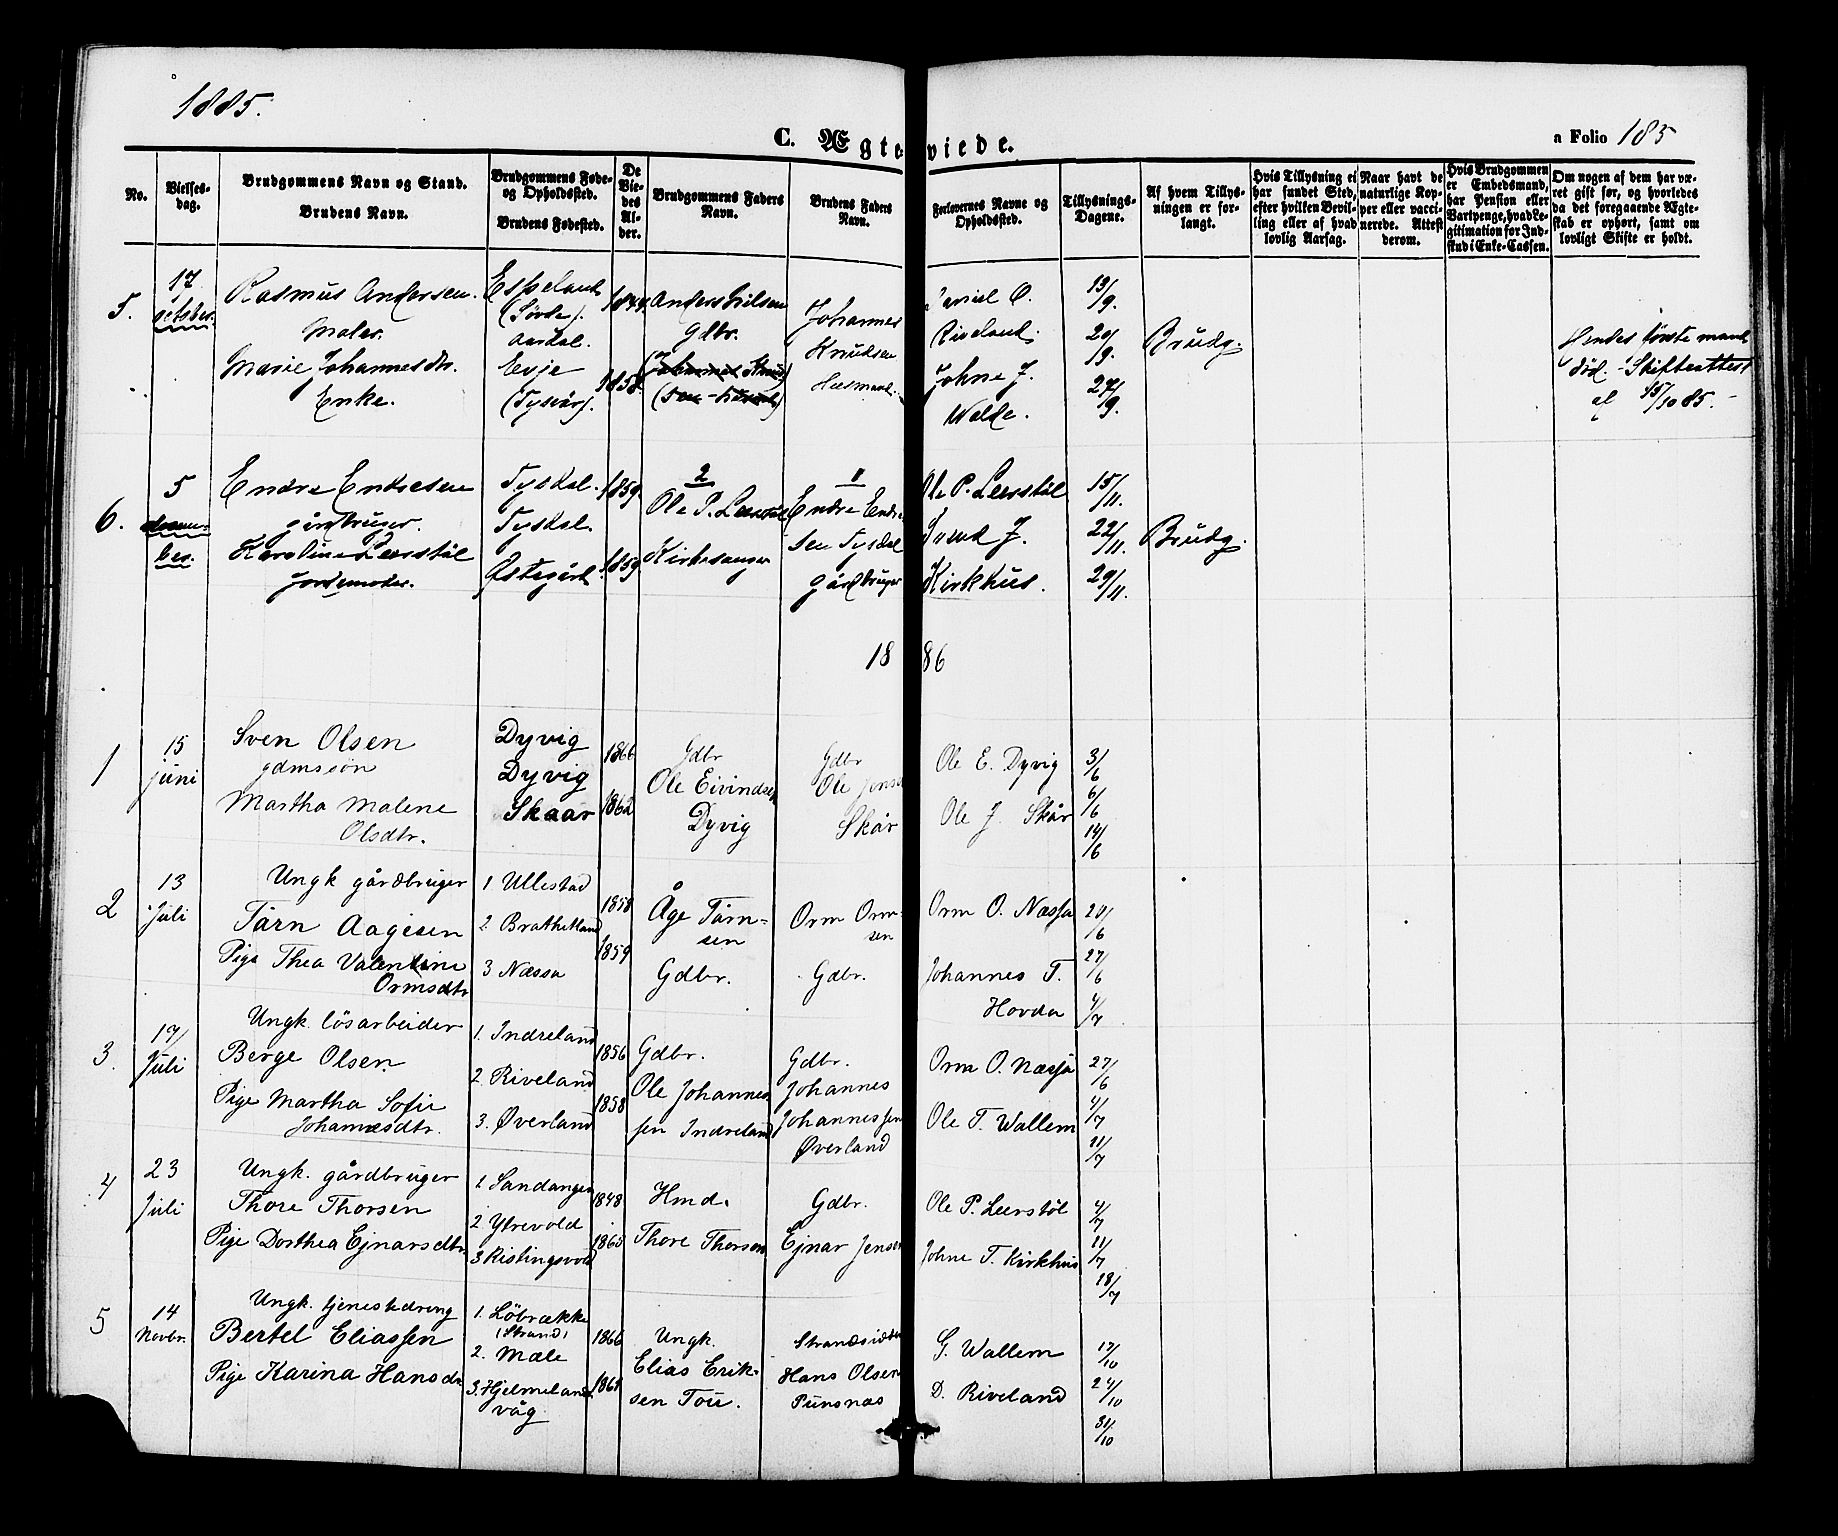 1885.
C. Ægteviede.
a Folio 185
No.
Vielses-
dag.
Brudgommens Navn og Stand.
Brudens Navn.
Brudgommens Føde-
og Opholdssted.
Brudens Fødested.
De
Vie-
des
Al-
der.
Brudgommens Faders
Navn.
Brudens Faders
Navn.
Forlovernes Navne og
Opholdssted.
Tillysnings-
Dagene.
Af hvem Tillys-
ningen er for-
langt.
Hvis Tillysning ei
har fundet Sted,
efter hvilken Bevil-
ling eller af hvad
lovlig Aarsag.
Naar havt de
naturlige Kop-
per eller vacci-
nerede. Attest
derom.
Hvis Brudgommen
er Embedsmand,
har Pension eller
Vartpenge, hvad Le-
gitimation for Ind-
skud i Enke-Cassen.
Om nogen af dem har væ-
ret gift før, og hvorledes
da det foregaaende Ægte-
skab er ophørt, samt om
lovligt Skifte er holdt.
5.
17
october.
Rasmus Andersen.
Maler.
Marie Johannesdtr.
Enke.
Espeland
(Sørde).
Aardal.
Evje
(Tysvær).
1844
1858
Anders Nilsen
Gdbr.
Johannes
Knudsen
Husmand.
Daniel O.
Riveland.
Johne J.
Walde.
13/9.
20/9.
27/9.
Brudg.
Hendes første mand
død. Skifteattest
af 15/10 85.
6.
5
decem-
ber.
Endre Endresen
gårdbruger.
Karoline Leerstøl
jordemoder.
Tysdal.
Tysdal.
Østegård.
1859.
1859.
2
Ole P. Leerstøl
Kirkesanger
1
Endre Endre
sen Tysdal
gårdbruger
Ole P. Leerstøl
Svend J.
Kirkhus.
15/11.
22/11.
29/11.
Brudg.
1886
1
15
juni
Sven Olsen
gdmssøn
Martha Malene
Olsdtr.
Dyvig
Dyvig
Skaar
1866
1862
Gdbr
Ole Eivindsen
Dyvig
Gdbr
Ole Jens
Skår
Ole E. Dyvig
Ole J. Skår
3/6
6/6
14/6
2
13
Juli
Ungk gårdbruger
Tårn Aagesen
Pige Thea Valentine
Ormsdtr
1. Ullestad
2 Brathetland
3 Næssa
1858
1859
Åge Tårn-
sen
Gdbr.
Orm Orm-
sen
Gdbr.
Orm O. Næssa
Johannes T.
Hovda
20/6
27/6
4/7
3.
17/
Juli
Ungk. løsarbeider
Berge Olsen.
Pige Martha Sofie
Johannesdtr.
1. Indreland
2. Riveland
3. Øverland
1856
1858
Gdbr.
Ole Johannes
sen Indreland
Gdbr.
Johannes
Johannessen
Øverland
Orm O. Næssa
Ole T. Wallem
27/6
4/7
11/7
4
23
Juli
Ungk. gårdbruger
Thore Thorsen
Pige Dorthea Ejnarsdtr
1 Sandanger
2. Ytrevold
3 Ristingsvold
1848
1865
Hmd.
Thore Thorsen
Gdbr.
Ejnar Jensen
Ole P. Leerstøl
Johne T. Kirkhus
4/7
11/7
18/7
5
14
Novbr.
Ungk. tjenestedreng
Bertel Eliassen
Pige Karina Hansdr
1. Löbrække
(Strand)
2. Mæle
3. Hjelmelands
våg
1866
Ungk.
Elias Erik-
sen Tou.
Strandsidder
Hans Olsen
Punsnæs
G. Wallem
D. Riveland
17/10
24/10
31/10